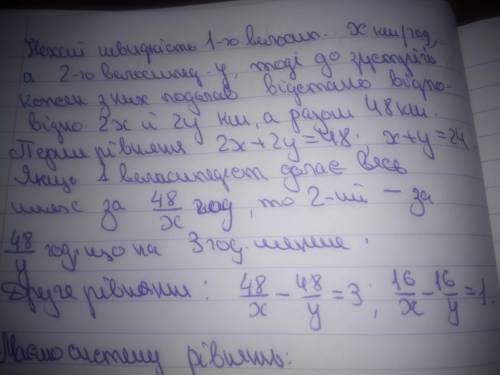 Нехай швидкість 1-го велосип. x км/год,
а 2-го велосипед-y, тоді до зустрічі
кожен з них подолав відстань відпо-
відно 2x й 2y км, а разом 48 км.
Перше рівняння 2x+2y=48; x+y=24
Якщо 1 велосипедист долає весь
шлях за 48/x год, то 2-ий – за
48/y год, що на 3 год. менше.
Друге рівняння: 48/x - 48/y = 3; 16/x - 16/y = 1
Маємо систему рівнянь: